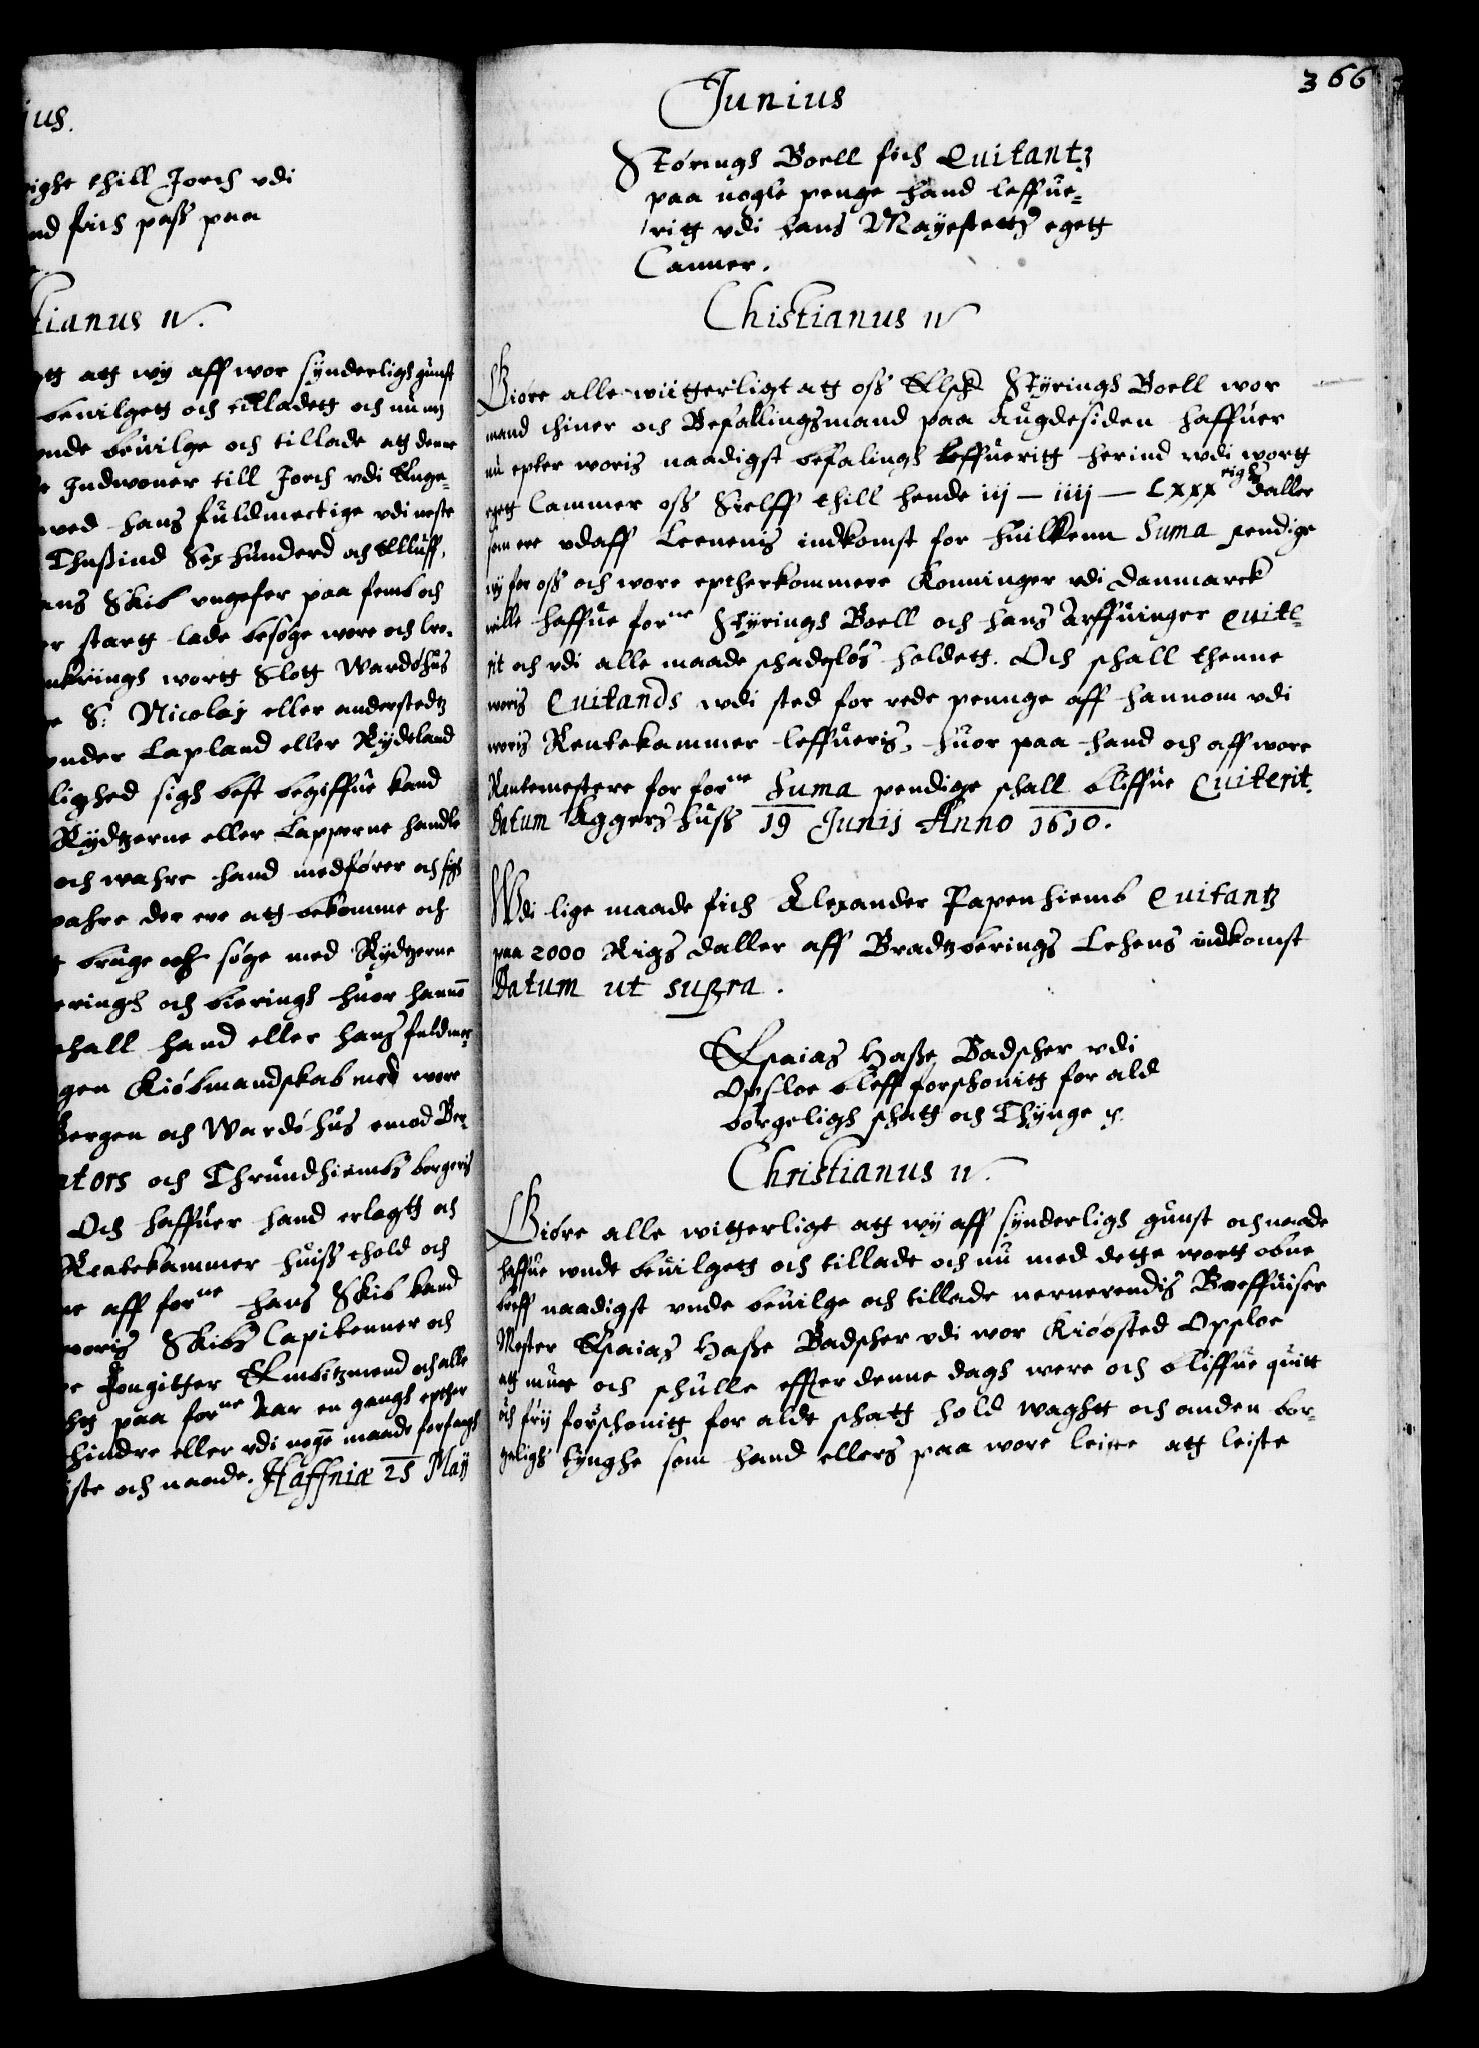 ius.
ighe thill Jorch vdi
nd frich pass paa
tianus IV.
tt att wij aff wor synderligh gunst
beuilgett och tilladett och nu
nde beuilge och tillade att denne
Indwoner till Jorch vdi Enge-
wed hans fuldmectige vdi neste
Thusind Sex hunderd och Elluff,
ans Skib vngefer paa femb och
er startt lade besøge wore och
nkringh wortt Slott Wardøhus
S: Nicolaj eller anderstedtz
vnder Lapland eller Rydtzland
lighed sigh best begiffue kand
Rydtzerne eller Lapperne handle
och wahre hand medfører och sigh
wahre der ere att bekomme och
bruge och søge med Rydtzerne
eringh och bieringh huor hannē
shall hand eller hans fuldmec-
gen Kiøbmandskab med wore
Bergen och Wardøhus emod Ber-
ators och Thrundhiembs borgeris
Och haffuer hand erlagtt och
Rentekammer huiss thold och
ne aff forne hans Skib kand
woris Skibs Capiteuner och
Fougitter Embitzmend och alle
hg paa forne Aar en gangh epther
hindre eller vdi nogē maade forfangh
ste och naade. Haffniæ 25 Maij
366
Junius
Støringh Boell fich Quitantz
paa nogle penge hand leffue-
ritt vdi hans Mayestettz egett
Camer.
Chistianus IV
Giøre alle wiitterligt att oss Elsk Styringh Boell wor
mand thiner och Befallingsmand paa Augdesiden haffuer
nu epter woris naadigst befalingh leffueritt herind wdi wortt
egett Cammer oss Sielff thill hende iij — iiij — Lxxx rigs daller
som ere vdaff Leenens indkomst for huilkenn Suma pendige
wij for oss och wore eptherkommere Konninger vdi Danmarck
wille haffue forne Styringh Boell och hans Arffuinger quite-
rit och vdi alle maade schadesløs holdett. Och schall thenne
woris Quitands wdi sted for rede pennge aff hannom vdi
woris Rentekammer leffueris, huor paa hand och aff wore
Rentemestere for forne Suma pendige schall bliffue Quiterit.
Datum Aggershuss 19 Junij Anno 1610.
Wdi lige maade fich Alexander Papenhiemb Quitantz
paa 2000 Rigs daller aff Bradtzberings Lehens indkomst
Datum ut supra.
Esaias Hasse Badscher vdi
Opsloe bleff forschonitt for ald
borgeligh schatt och Thynge
Christianus IV.
Giøre alle witterligt att wij aff synderligh gunst och naade
haffue wndt beuilgett och tilladt och nu med dette wortt obne
breff naadigst vnde beuilge och tillade nerverendis Breffuiser
Mester Esaias Hasse Badscher vdi wor Kiøbsted Opsloe
att mue och schulle effter denne dagh were och bliffue quitt
och frij forschonitt for aldt schatt hold waghtt och anden bor-
geligh tynghe som hand ellers paa wore leiee att leiste